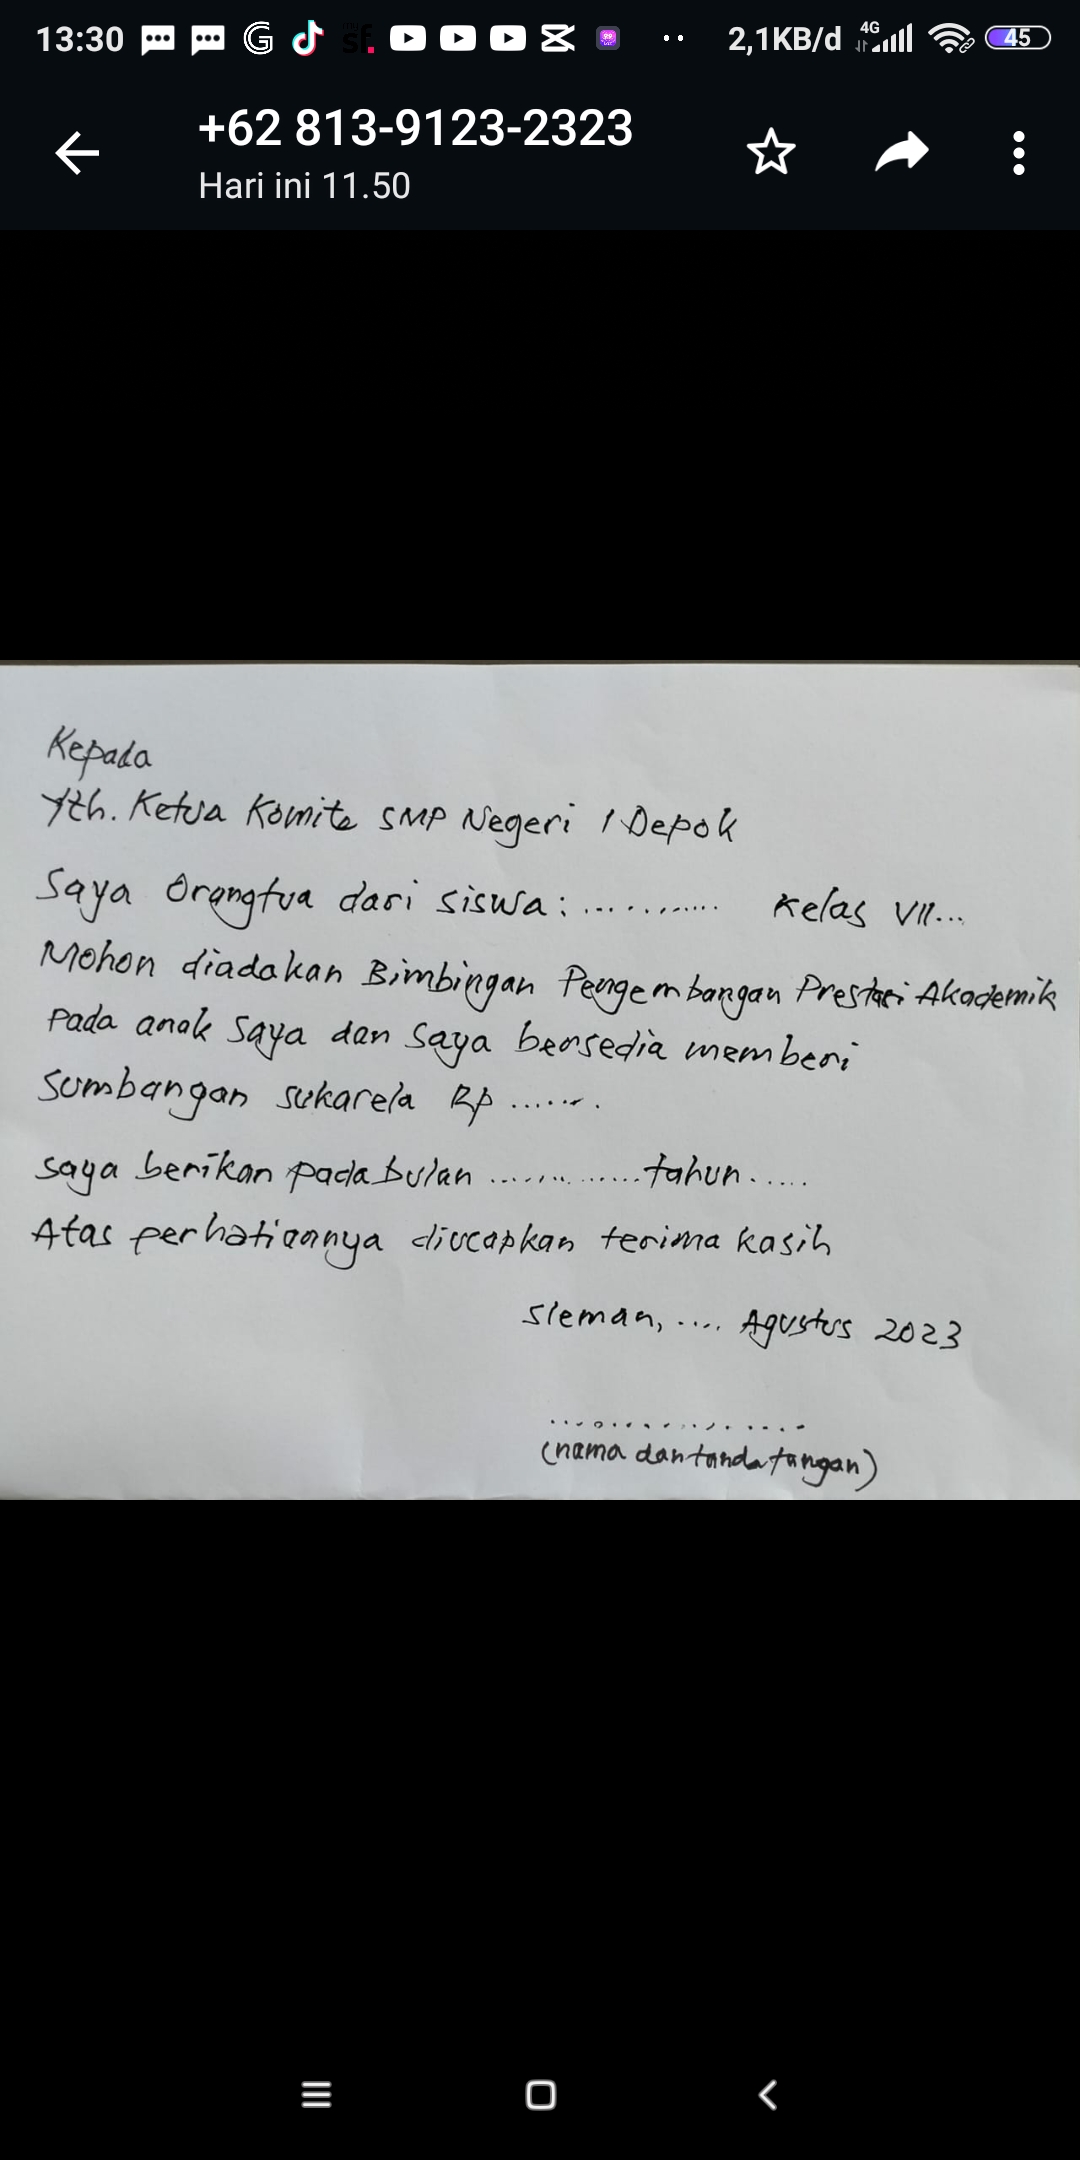 13:30
2,1KB/d 4G 45
+62 813-9123-2323
Hari ini 11.50
Kepada
Yth. Ketua Komite SMP Negeri 1 Depok
Saya Orangtua dari siswa: ........... Kelas VII...
Mohon diadakan Bimbingan Pengembangan Prestasi Akademik
pada anak saya dan saya bersedia memberi
sumbangan sukarela Rp .......
saya berikan pada bulan ............. tahun.....
Atas perhatiannya diucapkan terima kasih
Sleman, .... Agustus 2023
..................
(nama dan tanda tangan)